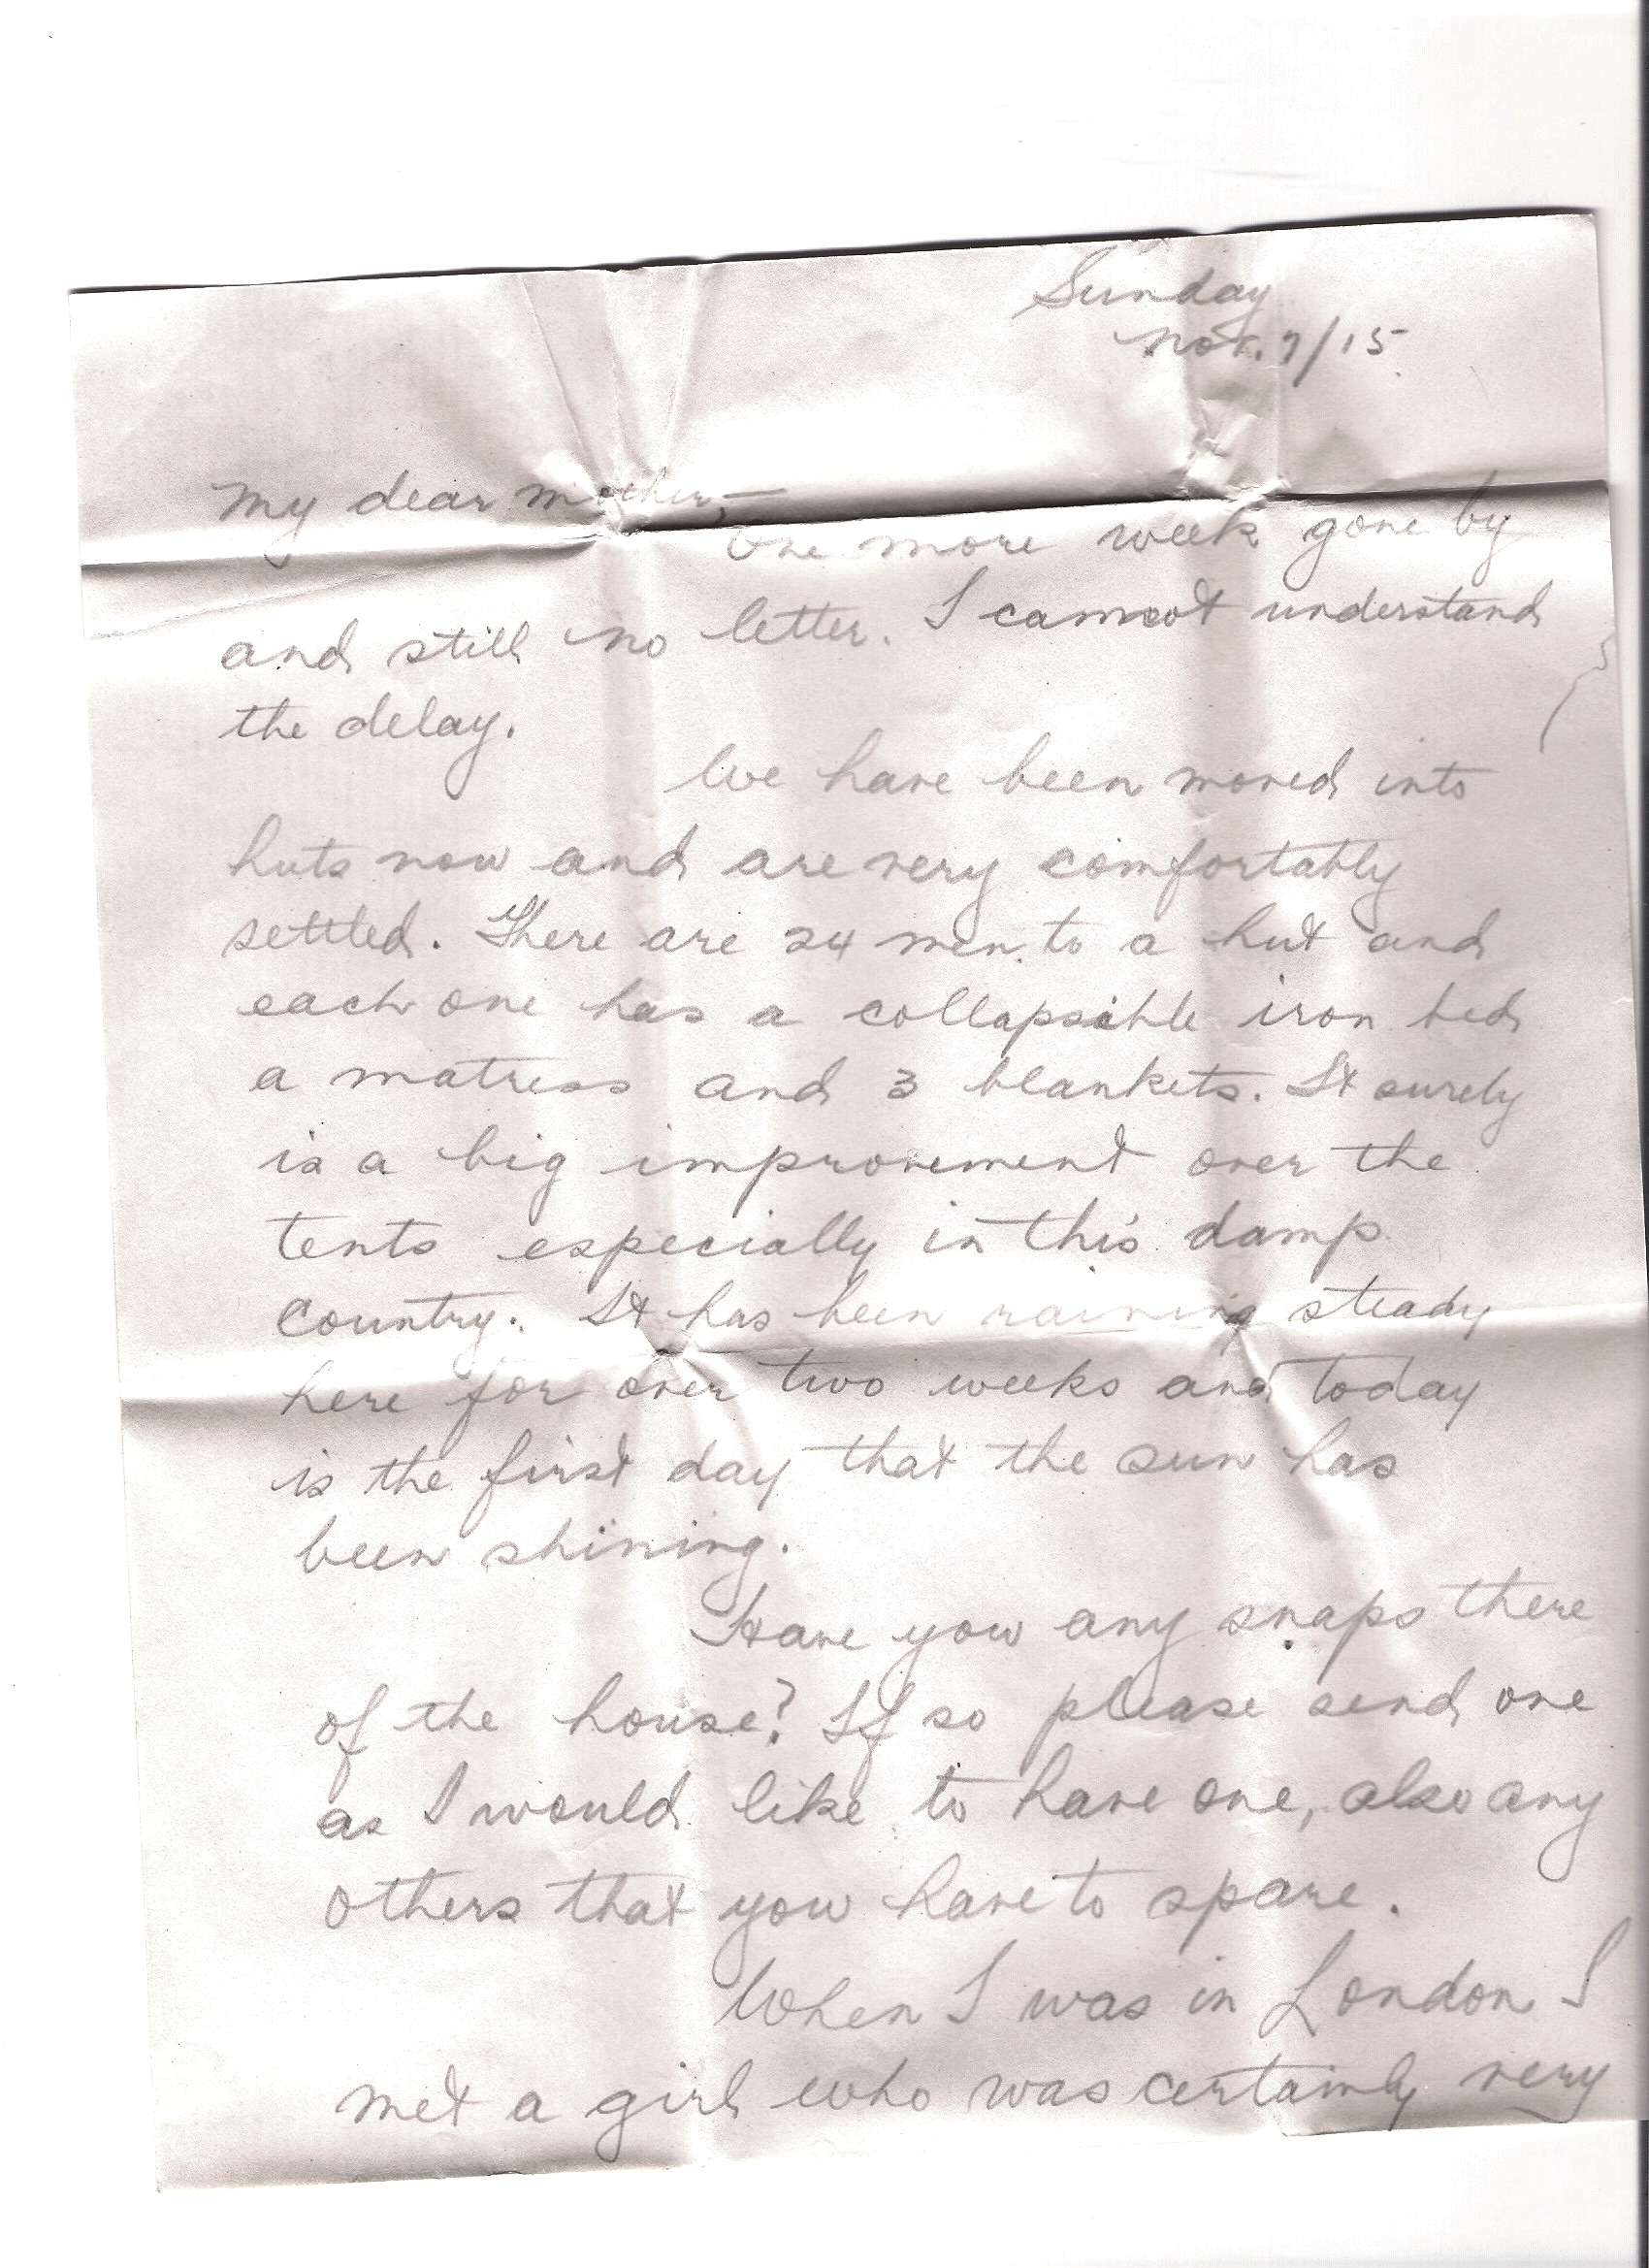 Sunday
Nov. 7/15.
My dear mother,—
One more week gone by
and still no letter. I cannot understand
the delay.
We have been moved into
huts now and are very comfortably
settled. There are 24 men to a hut and
each one has a collapsable iron bed
a matress and 3 blankets. It surely
is a big improvement over the
tents especially in this damp
country. It has been raining steady
here for over two weeks and today
is the first day that the sun has
been shining.
Have you any snaps there
of the house? If so please send one
as I would like to have one, also any
others that you have to spare.
When I was in London I
met a girl who was certainly very